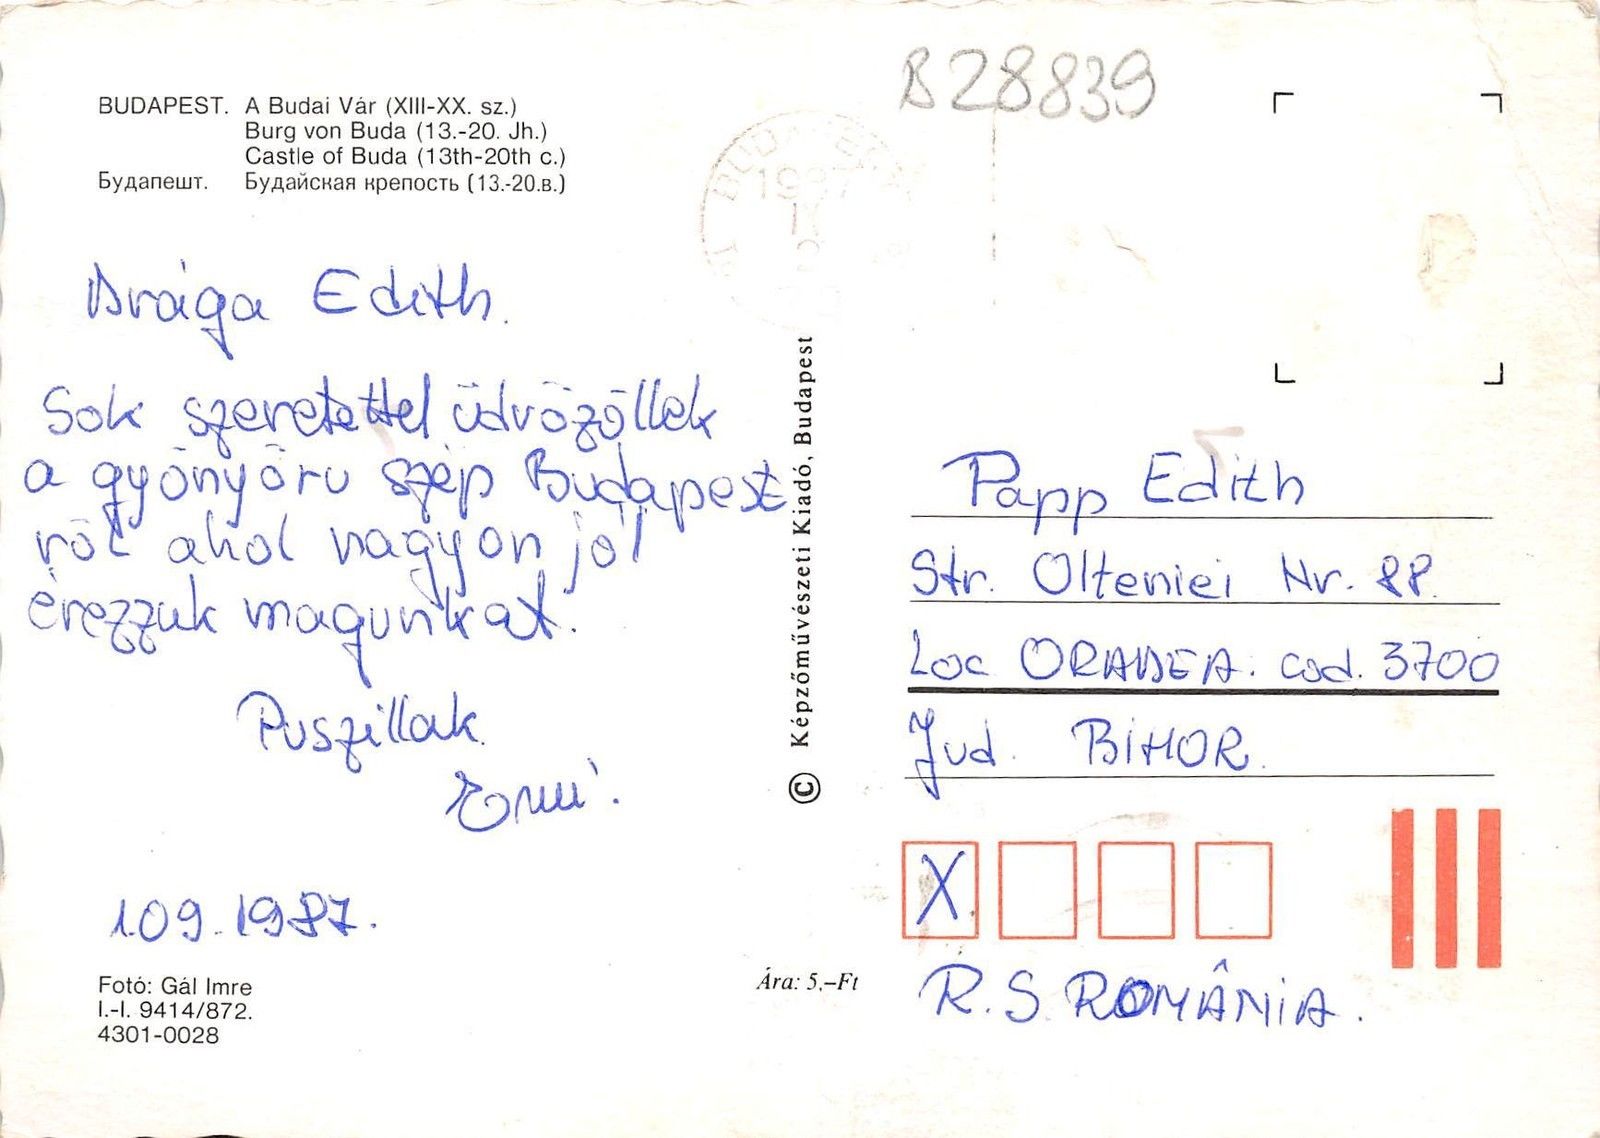 B28839
BUDAPEST. A Budai Vár (XIII-XX. sz.)
Burg von Buda (13.-20. Jh.)
Castle of Buda (13th-20th c.)
Будапешт. Будайская крепость (13.-20.в.)
1987
Drága Edith.
Sok szeretettel üdvözöllek
a gyönyöru szép Budapest
ről ahol nagyon jól
érezzuk magunkat.
Puszillak
1.09.1987.
Fotó: Gál Imre
I.-I. 9414/872.
4301-0028
Ára: 5.–Ft
© Képzőművészeti Kiadó, Budapest
Papp Edith
Str. Olteniei Nr. 88.
Loc ORADEA. cod. 3700
Jud. BIHOR.
X
R.S. ROMÂNIA.